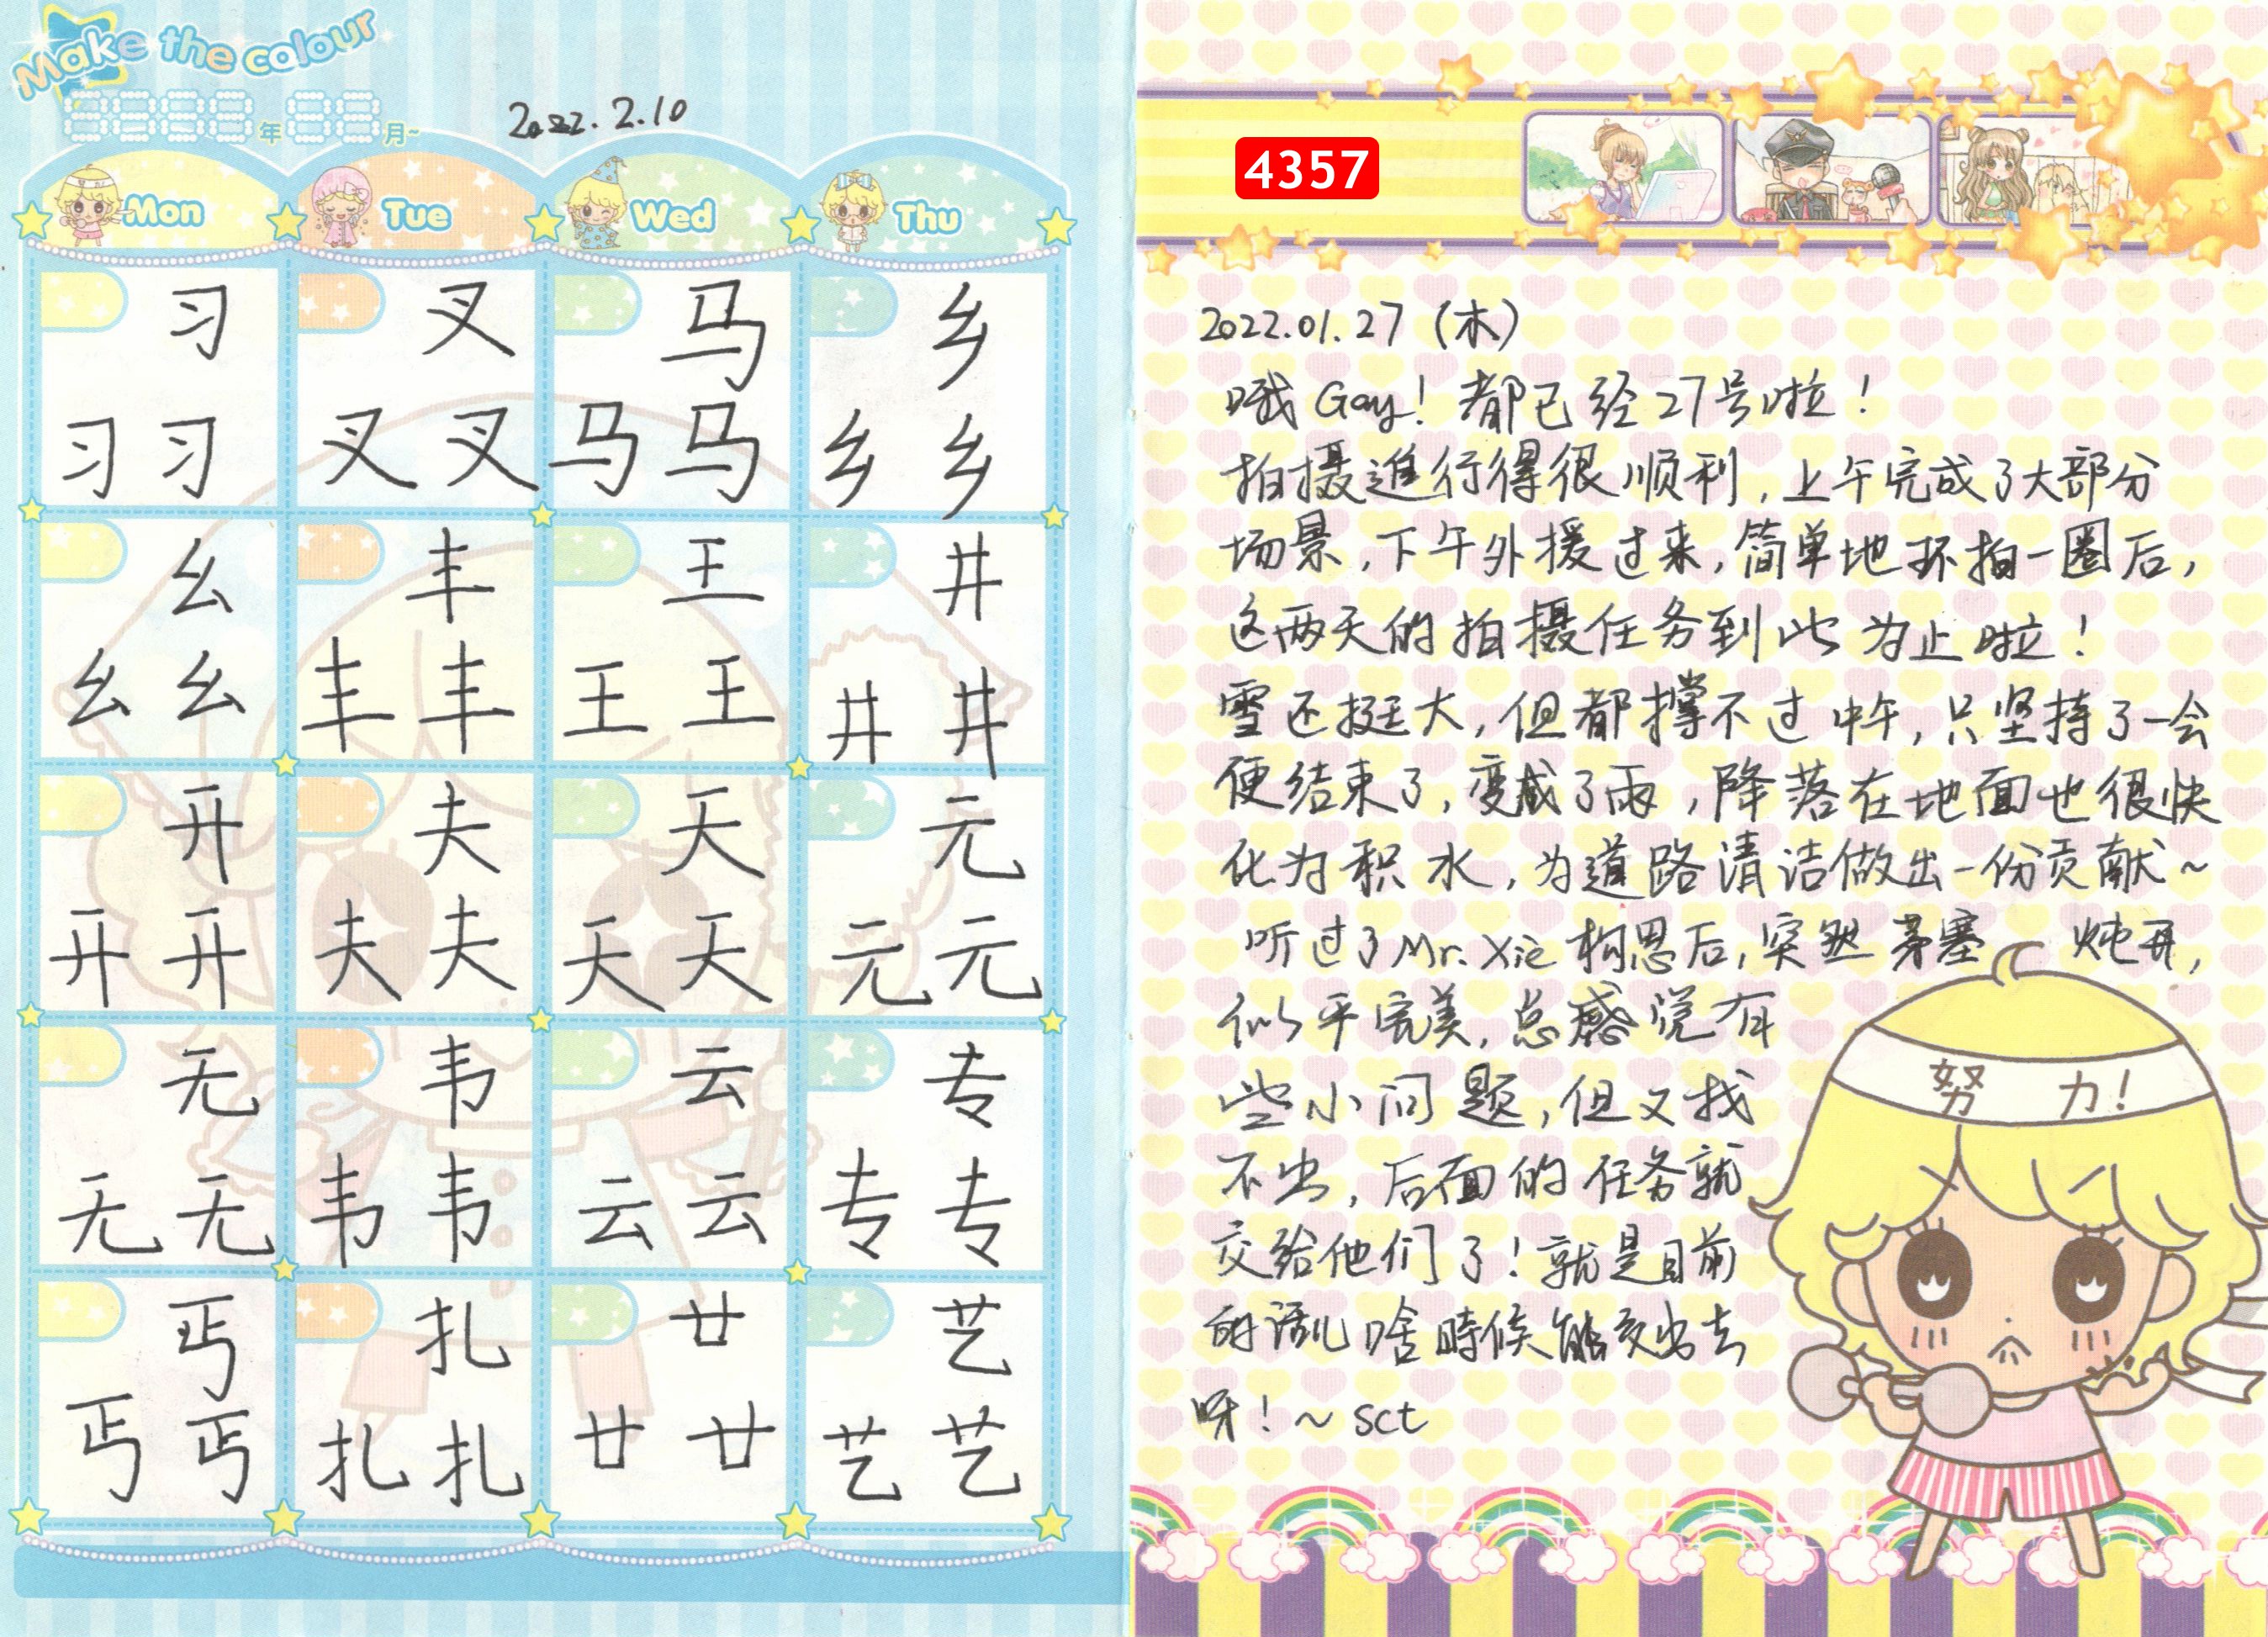 Make the colour
年 月~
2022.2.10
Mon Tue Wed Thu
习 叉 马 乡
习 习 叉 叉 马 马 乡 乡
幺 丰 王 井
幺 幺 丰 丰 王 王 井 井
开 夫 天 元
开 开 夫 夫 天 天 元 元
无 韦 云 专
无 无 韦 韦 云 云 专 专
丐 扎 廿 艺
丐 丐 扎 扎 廿 廿 艺 艺
4357
2022.01.27 (木)
哦 Gay! 都已经27号啦!
拍摄進行得很顺利,上午完成了大部分
场景,下午外援过来,简单地环拍一圈后,
这两天的拍摄任务到此为止啦!
雪还挺大,但都撑不过中午,只坚持了一会
便结束了,变成了雨,降落在地面也很快
化为积水,为道路清洁做出一份贡献~
听过了Mr.Xie构思后,突然茅塞 炖开,
似乎完美,总感觉有
些小问题,但又找
不出,后面的任务就
交给他们了!就是目前
的话儿啥時候能交出去
呀!~sct
努 力!